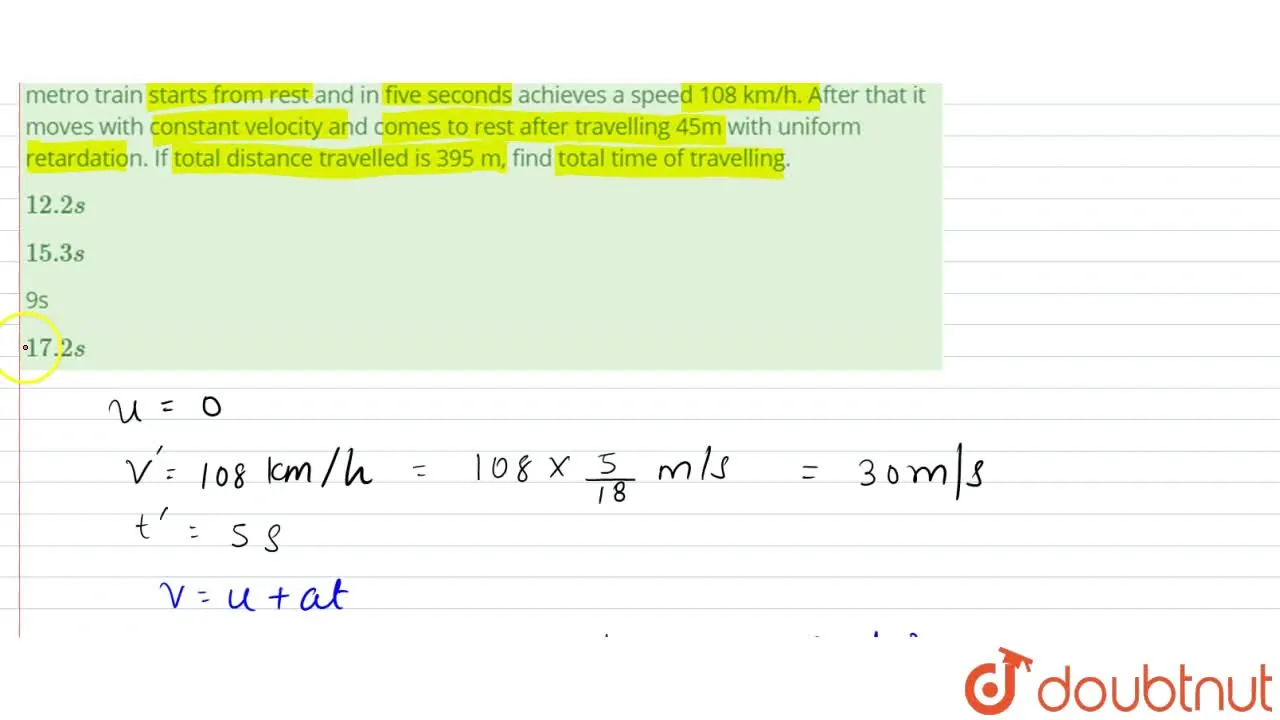 metro train starts from rest and in five seconds achieves a speed 108 km/h. After that it
moves with constant velocity and comes to rest after travelling 45m with uniform
retardation. If total distance travelled is 395 m, find total time of travelling.
12.2s
15.3s
9s
17.2s
u = 0
v' = 108 km/h = 108 × 5/18 m/s = 30 m/s
t' = 5 s
v = u + at
doubtnut